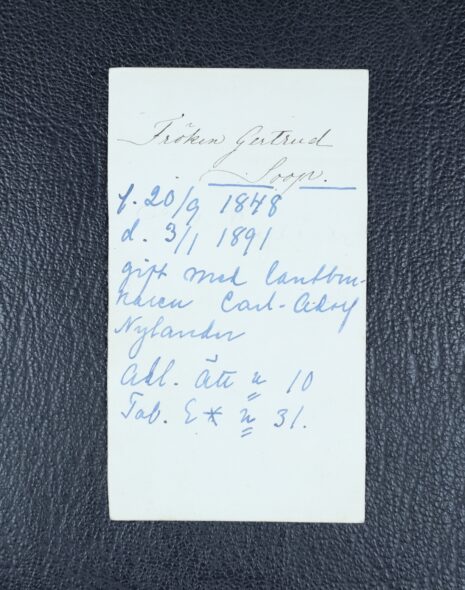 Fröken Gertrud
Soop.
f. 20/9 1848
d. 3/1 1891
gift med lantbru-
karen Carl-Adolf
Nylander
Adl. Ätt n 10
Tab. E* n 31.